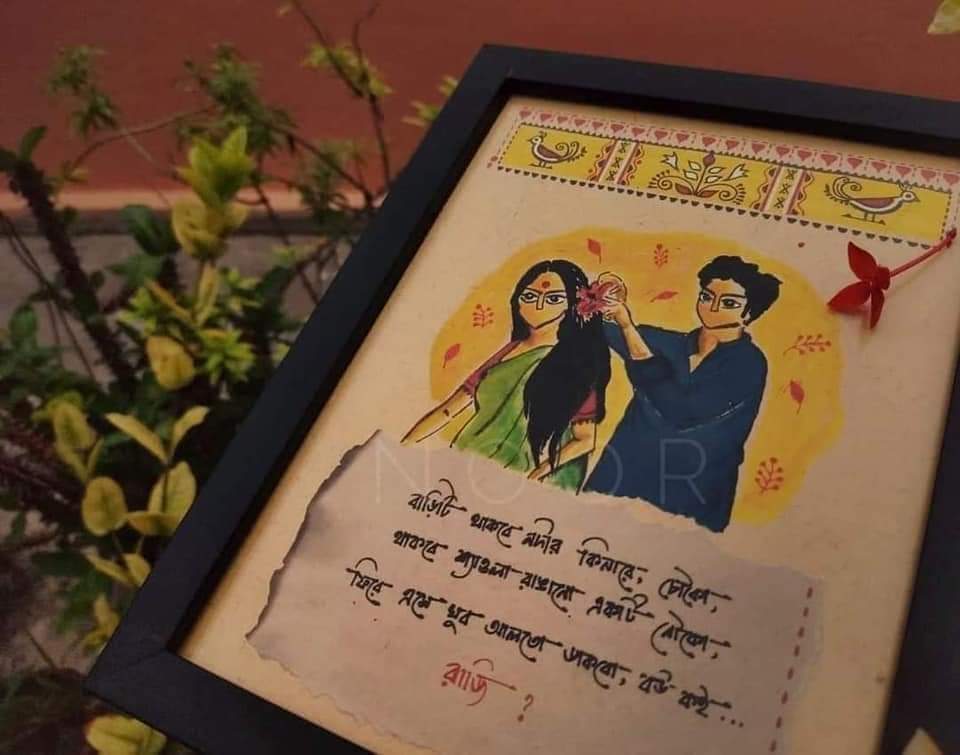 NOOR
বাড়িটি থাকবে নদীর কিনারে, চৌকো,
থাকবে শ্যাওলা রাঙানো একটি নৌকো,
ফিরে এসে খুব আলতো ডাকবো, বউ কই...
রাজি ?